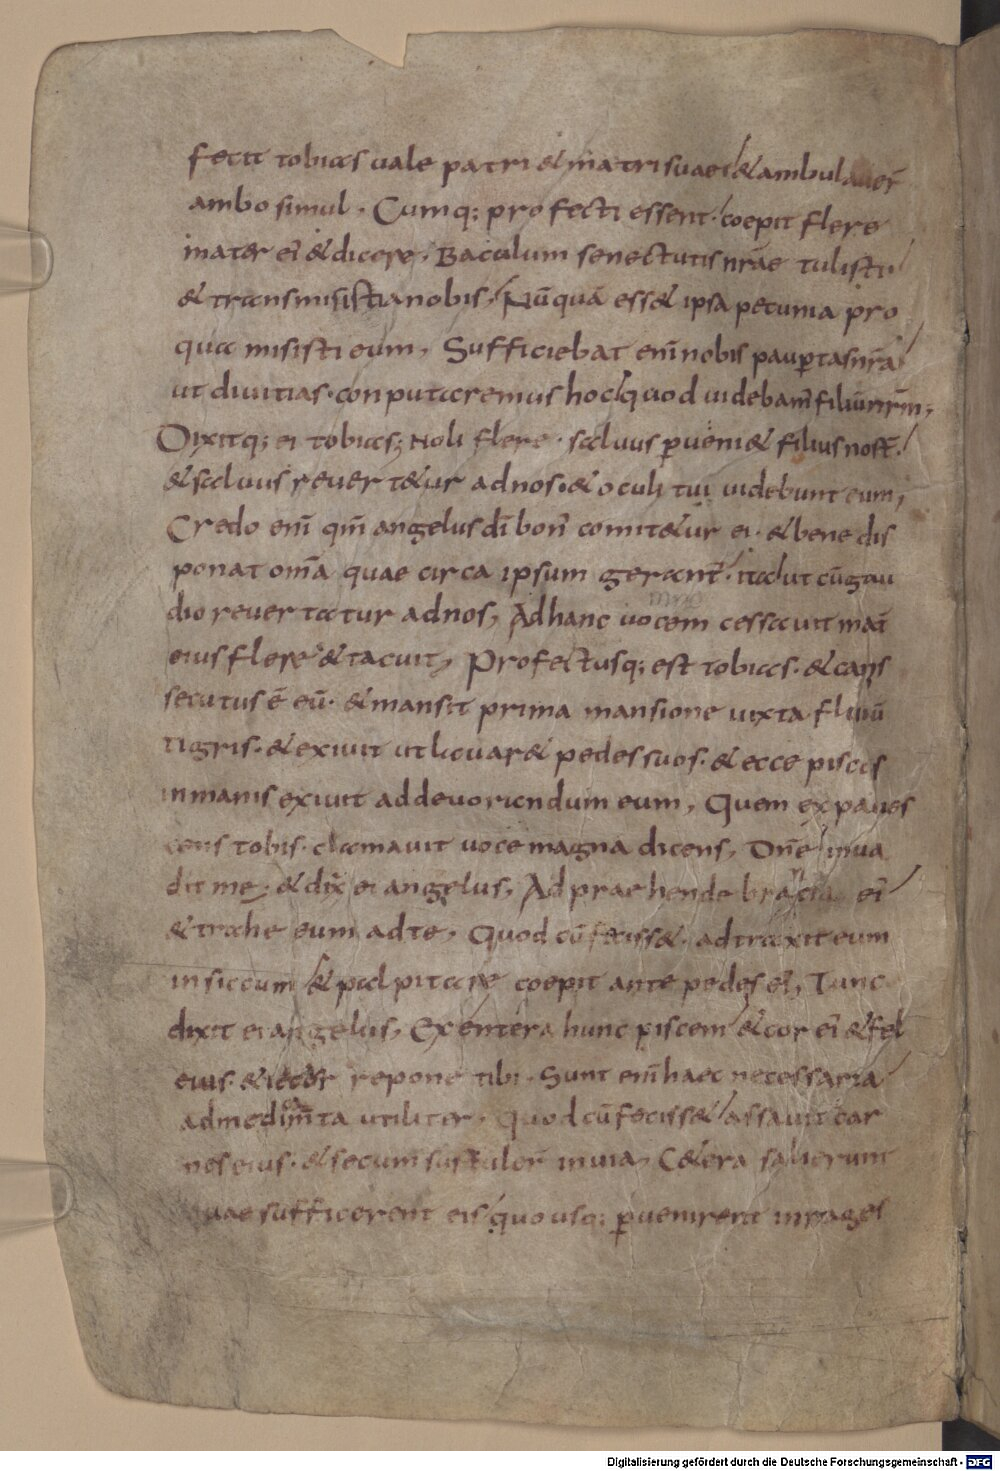 fecit tobias uale patri & matri suae & ambulauer̄
ambo simul. Cumq; profecti essent. coepit flere
mater ei' & dicere, Baculum senectutis nr̄ae tulisti
& transmisisti a nobis, Nū quā ess& ipsa pecunia pro
qua misisti eum, Sufficiebat enī nobis paup̄tas nr̄a
ut diuitias. conputaremus hoc quod uidebam' filiū nr̄m,
Dixitq; ei tobias; Noli flere. saluus p̄ueni& filius nost̄.
& saluus reuert&ur ad nos. & oculi tui uidebunt eum,
Credo enī qm̄ angelus dī bon' comit&ur ei. & bene dis
ponat om̄a quae circa ipsum gerant̄. ita ut cū gau
dio reuertatur ad nos, Ad hanc uocem cessauit mat̄
eius flere & tacuit, Profectusq; est tobias. & canis
secutus ē eū. & mansit prima mansione iuxta fluuiū
tigris. & exiuit ut lauar& pedes suos. & ecce piscis
inmanis exiuit ad deuorandum eum, Quem expaues
cens tobis. clamauit uoce magna dicens, Dn̄e inua
dit me, & dix̄ ei angelus, Adpraehende bracia ei'
& trahe eum ad te, Quod cū feciss&. adtraxit eum
in siccum & palpitare coepit ante pedes ei', Tunc
dixit ei angelus, Exentera hunc piscem & cor ei' & fel
eius. & iecor repone tibi. Sunt enī haec necessaria
ad medim̄ta utiliter. Quod cū feciss& assauit car
nes eius. & secum sustuler̄ in uia, C&era salierunt
quae sufficerent eis quousq; p̄uenirent in rages
Digitalisierung gefördert durch die Deutsche Forschungsgemeinschaft - DFG